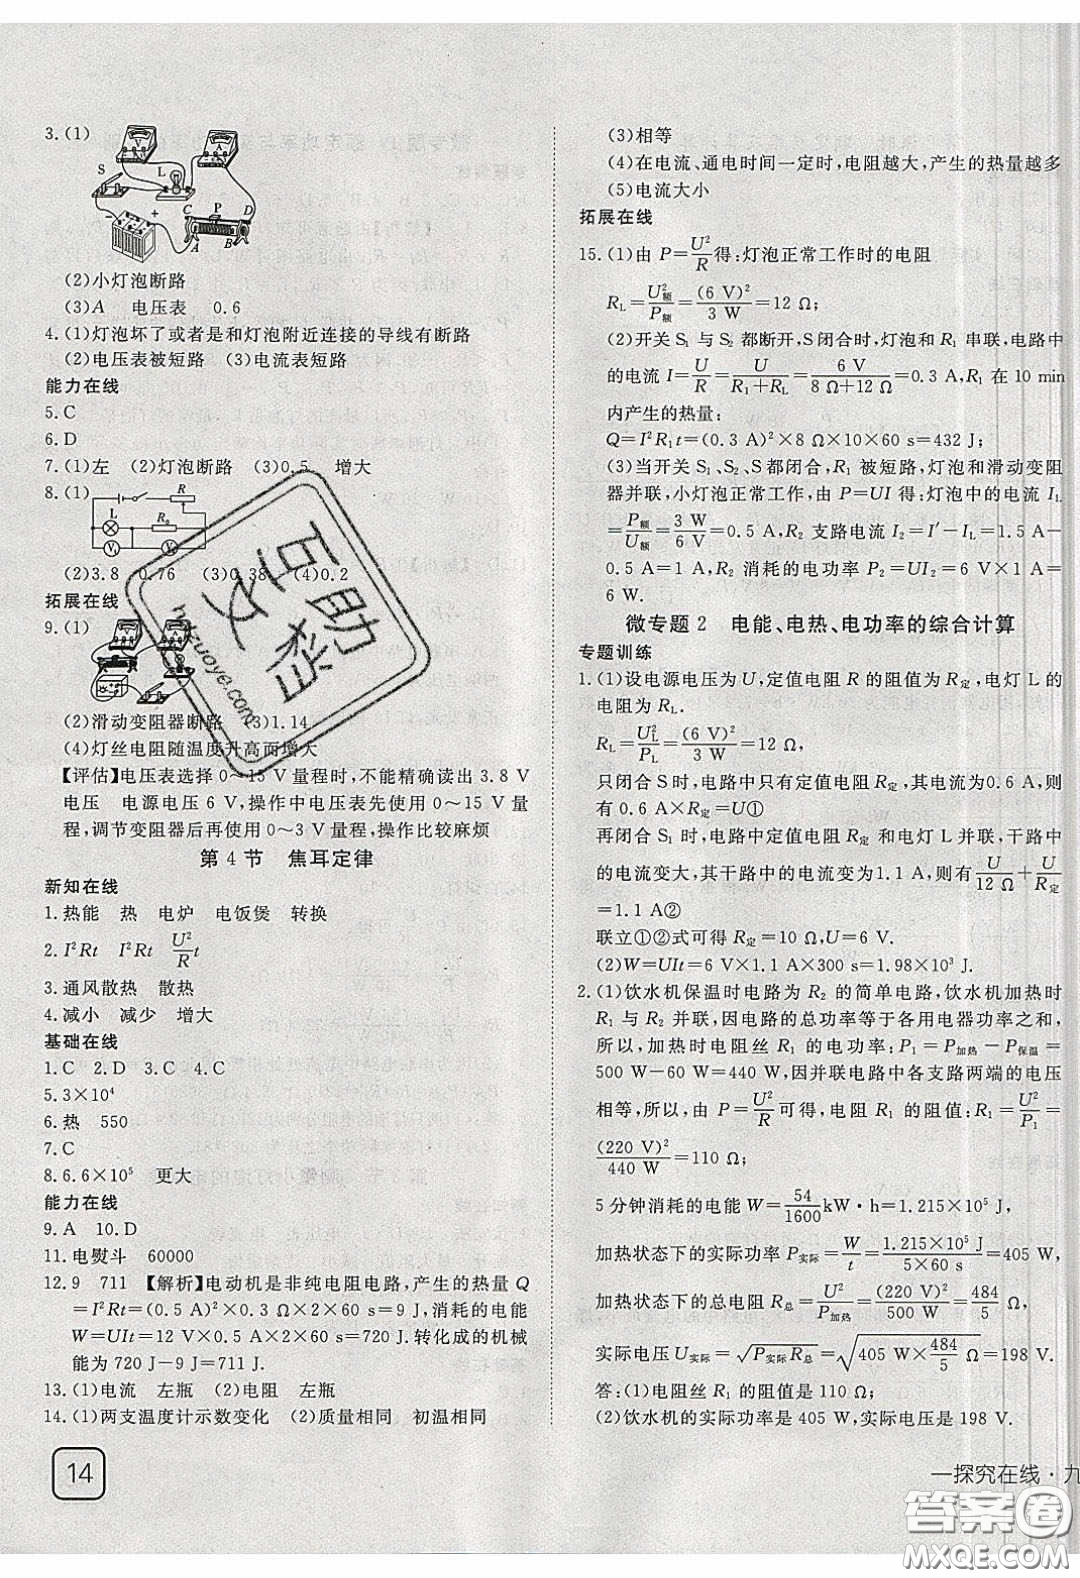 3.(1)
(2)小灯泡断路
(3)A 电压表 0.6
4.(1)灯泡坏了或者是和灯泡附近连接的导线有断路
(2)电压表被短路 (3)电流表短路
能力在线
5.C
6.D
7.(1)左 (2)灯泡断路 (3)0.5 增大
8.(1)
(2)3.8 0.76 (3)0.38 (4)0.2
拓展在线
9.(1)
(2)滑动变阻器断路 (3)1.14
(4)灯丝电阻随温度升高而增大
【评估】电压表选择 0～15 V 量程时,不能精确读出 3.8 V
电压 电源电压 6 V,操作中电压表先使用 0～15 V 量
程,调节变阻器后再使用 0～3 V 量程,操作比较麻烦
第 4 节 焦耳定律
新知在线
1.热能 热 电炉 电饭煲 转换
2.I²Rt I²Rt U²/R t
3.通风散热 散热
4.减小 减少 增大
基础在线
1.C 2.D 3.C 4.C
5.3×10⁴
6.热 550
7.C
8.6.6×10⁵ 更大
能力在线
9.A 10.D
11.电熨斗 60000
12.9 711 【解析】电动机是非纯电阻电路,产生的热量 Q
=I²Rt=(0.5 A)²×0.3 Ω×2×60 s=9 J,消耗的电能
W=UIt=12 V×0.5 A×2×60 s=720 J.转化成的机械
能为 720 J－9 J=711 J.
13.(1)电流 左瓶 (2)电阻 左瓶
14.(1)两支温度计示数变化 (2)质量相同 初温相同
14
(3)相等
(4)在电流、通电时间一定时,电阻越大,产生的热量越多
(5)电流大小
拓展在线
15.(1)由 P=U²/R得:灯泡正常工作时的电阻
R_L=U额²/P额=(6 V)²/3 W=12 Ω;
(2)开关 S₁ 与 S₂ 都断开,S闭合时,灯泡和 R₁ 串联,电路中
的电流 I=U/R=U/(R₁+R_L)=6 V/(8 Ω+12 Ω)=0.3 A,R₁ 在 10 min
内产生的热量:
Q=I²R₁t=(0.3 A)²×8 Ω×10×60 s=432 J;
(3)当开关 S₁、S₂、S 都闭合,R₁ 被短路,灯泡和滑动变阻
器并联,小灯泡正常工作,由 P=UI 得:灯泡中的电流 I_L
=P额/U额=3 W/6 V=0.5 A,R₂ 支路电流 I₂=I′－I_L=1.5 A－
0.5 A=1 A,R₂ 消耗的电功率 P₂=UI₂=6 V×1 A=
6 W.
微专题 2 电能、电热、电功率的综合计算
专题训练
1.(1)设电源电压为 U,定值电阻 R 的阻值为 R定,电灯 L 的
电阻为 R_L.
R_L=U_L²/P_L=(6 V)²/3 W=12 Ω,
只闭合 S 时,电路中只有定值电阻 R定,其电流为 0.6 A,则
有 0.6 A×R定=U①
再闭合 S₁ 时,电路中定值电阻 R定 和电灯 L 并联,干路中
的电流变大,其干路中的电流变为 1.1 A,则有 U/12 Ω+U/R定
=1.1 A②
联立①②式可得 R定=10 Ω,U=6 V.
(2)W=UIt=6 V×1.1 A×300 s=1.98×10³ J.
2.(1)饮水机保温时电路为 R₂ 的简单电路,饮水机加热时
R₁ 与 R₂ 并联,因电路的总功率等于各用电器功率之和,
所以,加热时电阻丝 R₁ 的电功率:P₁=P加热－P保温=
500 W－60 W=440 W,因并联电路中各支路两端的电压
相等,所以,由 P=U²/R 可得,电阻 R₁ 的阻值:R₁=U²/P₁=
(220 V)²/440 W=110 Ω;
5 分钟消耗的电能 W=54/1600 kW·h=1.215×10⁵ J,
加热状态下的实际功率 P实际=W/t=1.215×10⁵ J/5×60 s=405 W,
加热状态下的总电阻 R总=U²/P加热=(220 V)²/500 W=484/5 Ω,
实际电压 U实际=√(P实际R总)=√(405 W×484/5 Ω)=198 V.
答:(1)电阻丝 R₁ 的阻值是 110 Ω;
(2)饮水机的实际功率是 405 W,实际电压是 198 V.
一探究在线·九
答案圈
MXQE.COM